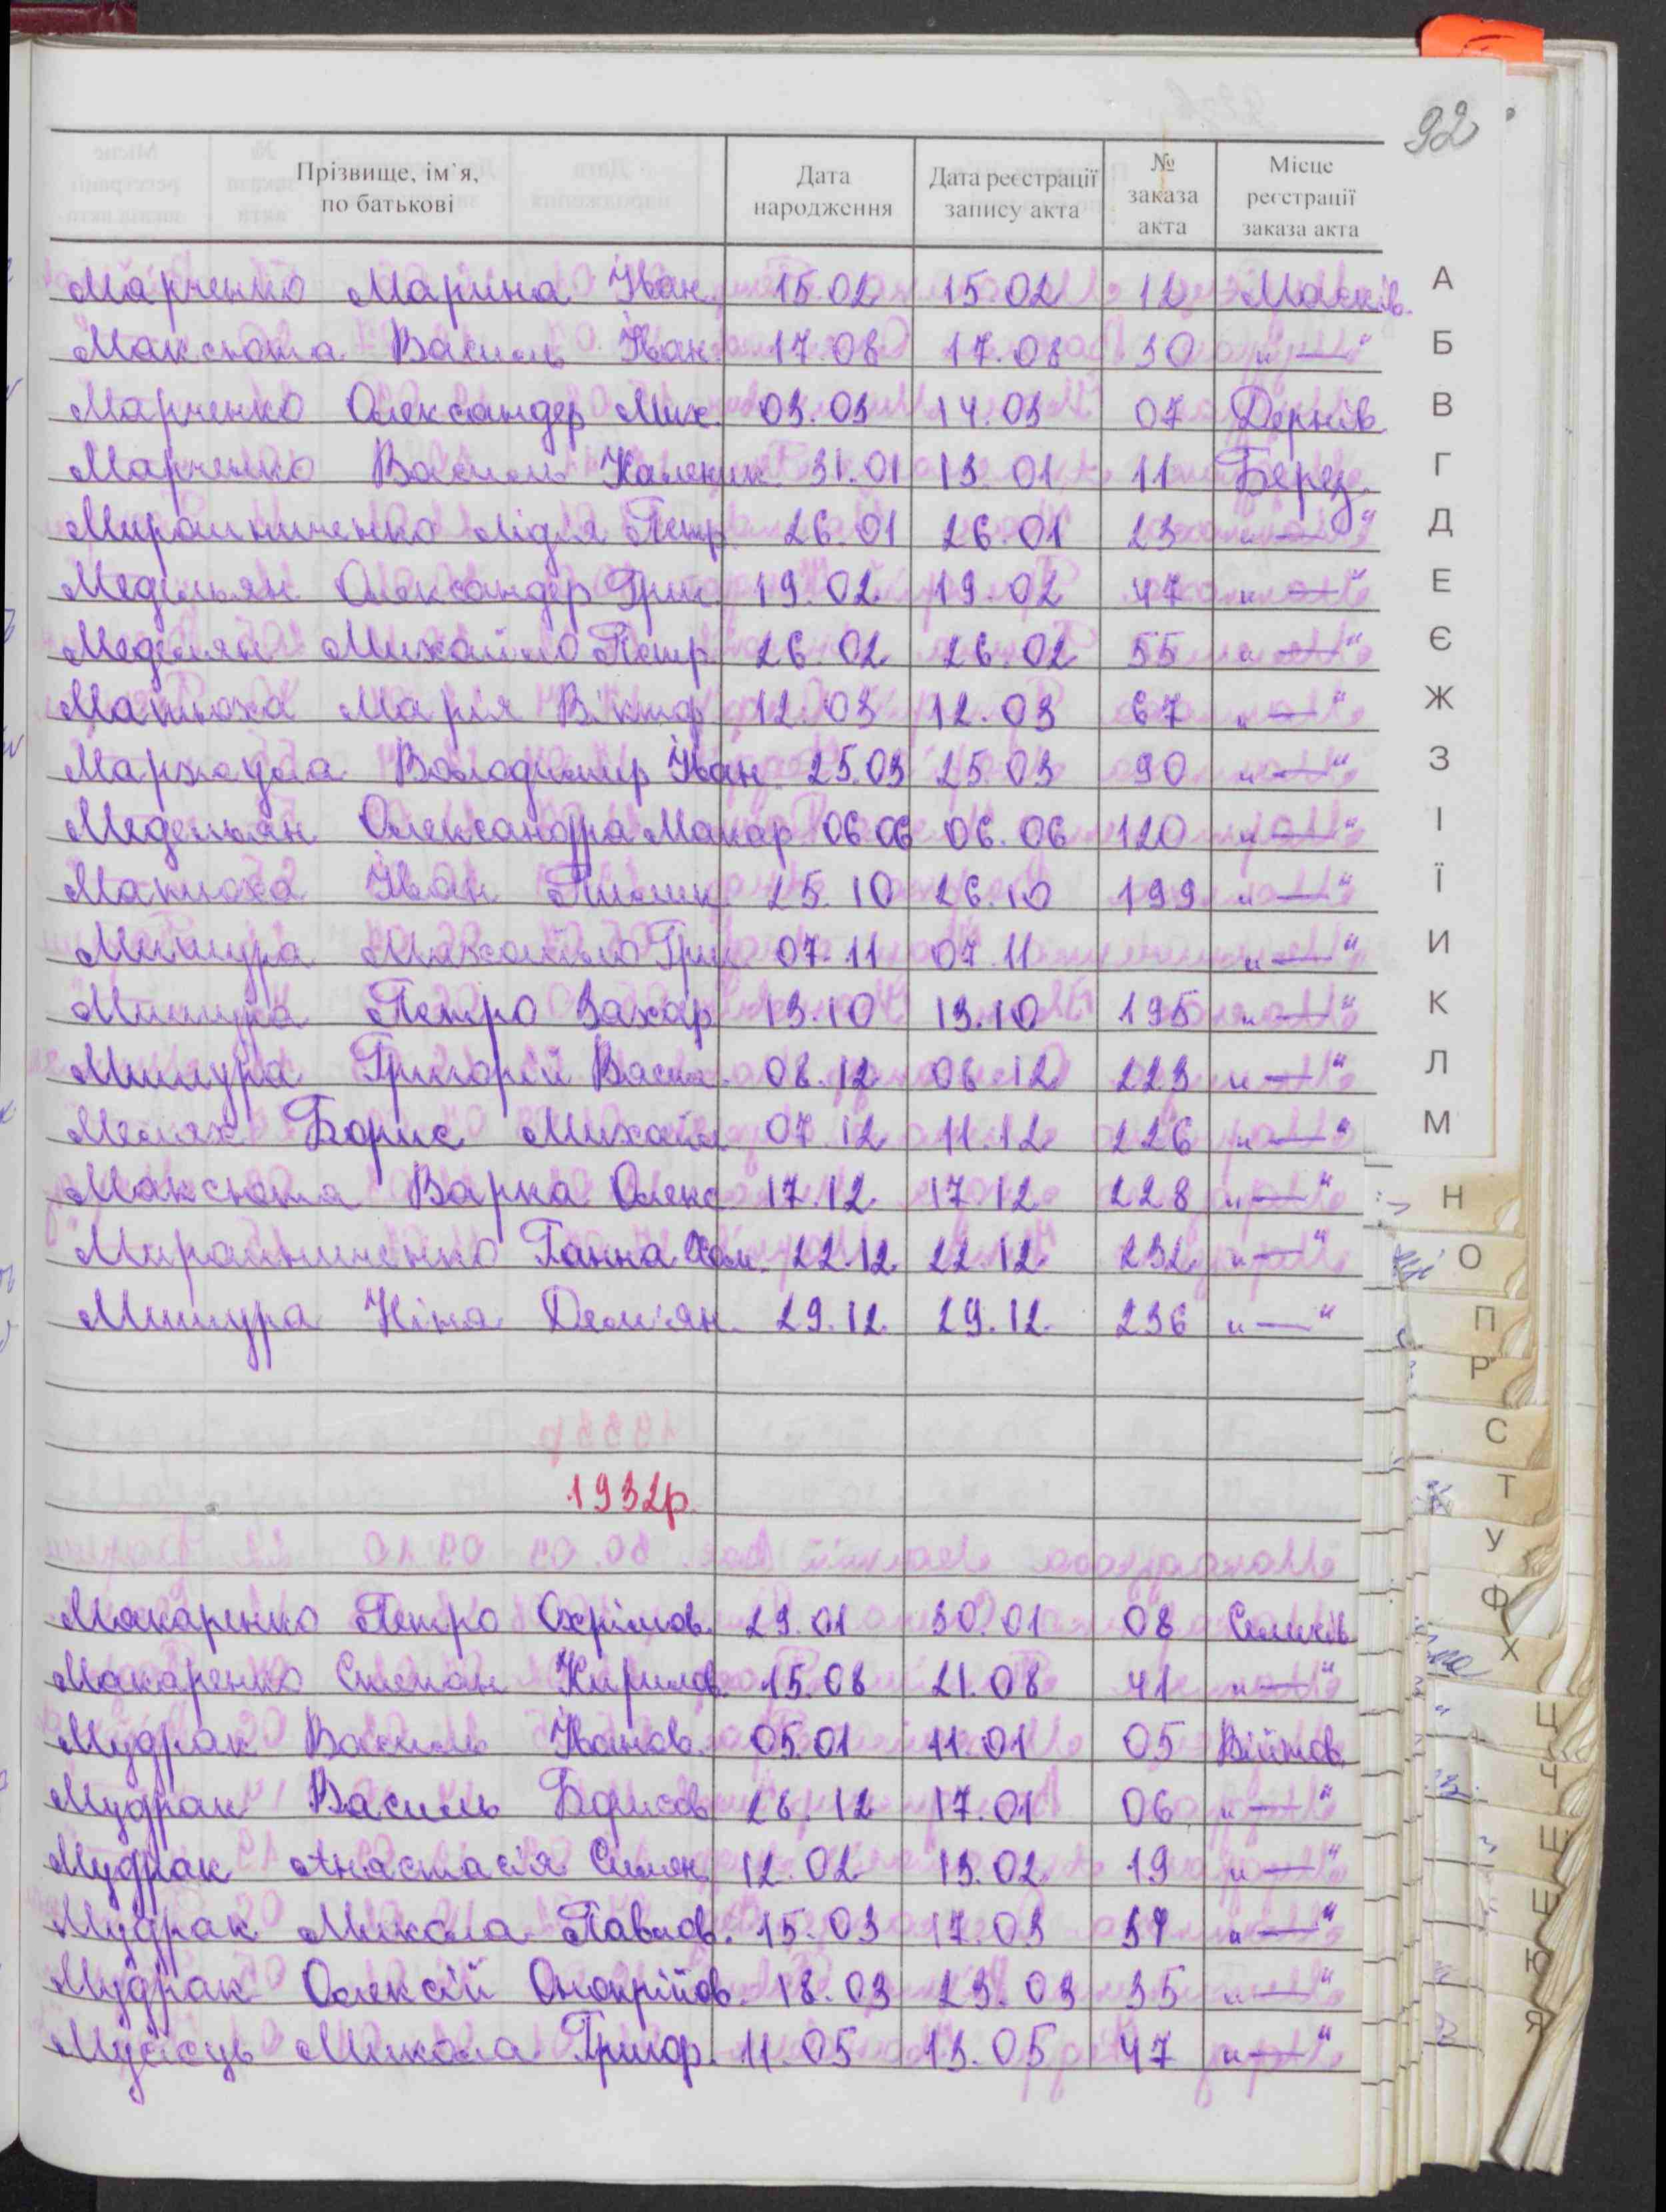 92
Прізвище, ім'я, по батькові | Дата народження | Дата реєстрації запису акта | № заказа акта | Місце реєстрації заказа акта
Марченко Марина Іван. 15.02 15.02 12 Масків.
Максюта Василь Іван 17.08 17.08 30 "—"
Марченко Олександер Мих. 03.03 14.03 07 Дернів
Марченко Василь Каленик. 31.01 13.01 11 Берез.
Мирошниченко Лідія Петр. 26.01 26.01 23 "—"
Медельян Олександер Григ. 19.02 19.02 47 "—"
Меделян Михайло Петр. 26.02 26.02 55 "—"
Матюха Марія Віктор 12.03 12.03 67 "—"
Володимир Іван 25.03 25.03 90 "—"
Медельян Олександра Макар 06.06 06.06 120 "—"
Іван Пилип. 25.10 26.10 199 "—"
Мишура Михайло Гри 07.11 07.11 "—"
Мишура Петро Захар 13.10 13.10 195 "—"
Мишура Григорій Васил. 08.12 06.12 223 "—"
Мелях Борис Михайл 07.12 11.12 226 "—"
Максюта Варка Олекс 17.12 17.12 228 "—"
Мирошниченко Ганна Хом. 22.12 22.12 232 "—"
Мишура Ніна Дем'ян. 29.12 29.12 236 "—"
1932р.
Макаренко Петро Охрімов. 29.01 30.01 08 Семків
Макаренко Степан Кирилов. 15.08 21.08 41 "—"
Мудрак Василь Іванов. 05.01 11.01 05 Війтов.
Мудрак Василь Борисов 26.12 17.01 06 "—"
Мудрак Анастасія Симон. 12.02 13.02 19 "—"
Мудрак Микола Павлов. 15.03 17.03 "—"
Мудрак Олексій Онопрійов. 18.03 23.03 35 "—"
Мусієць Микола Григор. 11.05 13.05 47 "—"
А
Б
В
Г
Д
Е
Є
Ж
З
І
Ї
И
К
Л
М
Н
О
П
Р
С
Т
У
Ф
Х
Ц
Ч
Ш
Щ
Ю
Я